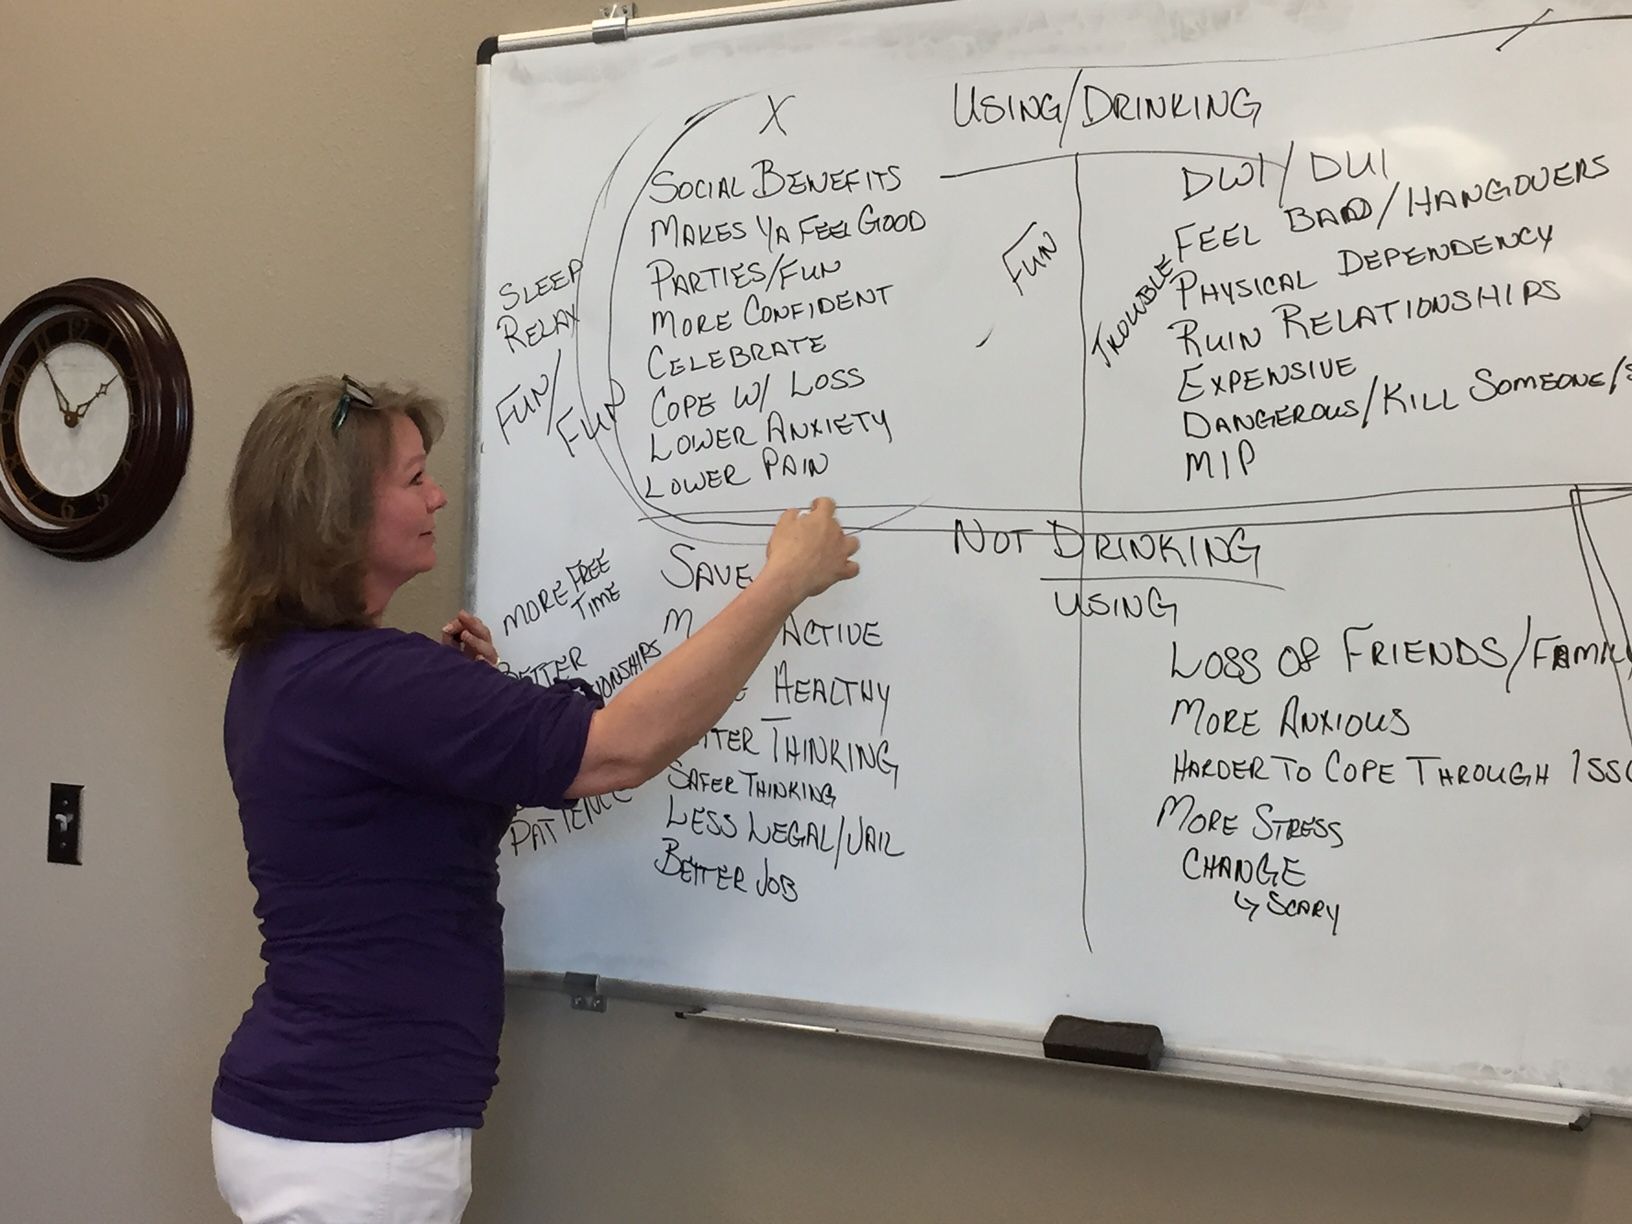 X
USING/DRINKING
SOCIAL BENEFITS
MAKES YA FEEL GOOD
PARTIES/FUN
MORE CONFIDENT
CELEBRATE
COPE W/ LOSS
LOWER ANXIETY
LOWER PAIN
SLEEP
RELAX
FUN/
FUN
FUN
TROUBLE
DWI/DUI
FEEL BAD/HANGOVERS
PHYSICAL DEPENDENCY
RUIN RELATIONSHIPS
EXPENSIVE
DANGEROUS/KILL SOMEONE/
MIP
NOT DRINKING
USING
SAVE
ACTIVE
HEALTHY
THINKING
SAFER THINKING
LESS LEGAL/JAIL
BETTER JOB
MORE FREE
TIME
BETTER
PATIENCE
LOSS OF FRIENDS/
MORE ANXIOUS
HARDER TO COPE THROUGH
MORE STRESS
CHANGE
↳ SCARY